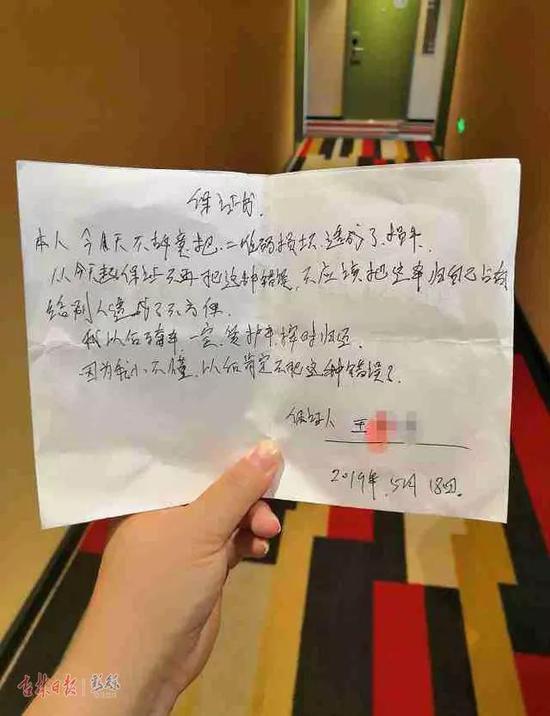 保证书.
本人 今天不慎重把二维码损坏.造成了损失
从今天起保证不再犯这种错误,不应该把单车归自己占有
给别人造成了不方便.
我以后骑车一定.爱护车.按时归还.
因为我小不懂.以后肯定不犯这种错误了.
保证人 王
2019年.5月18日.
吉林日报 彩练